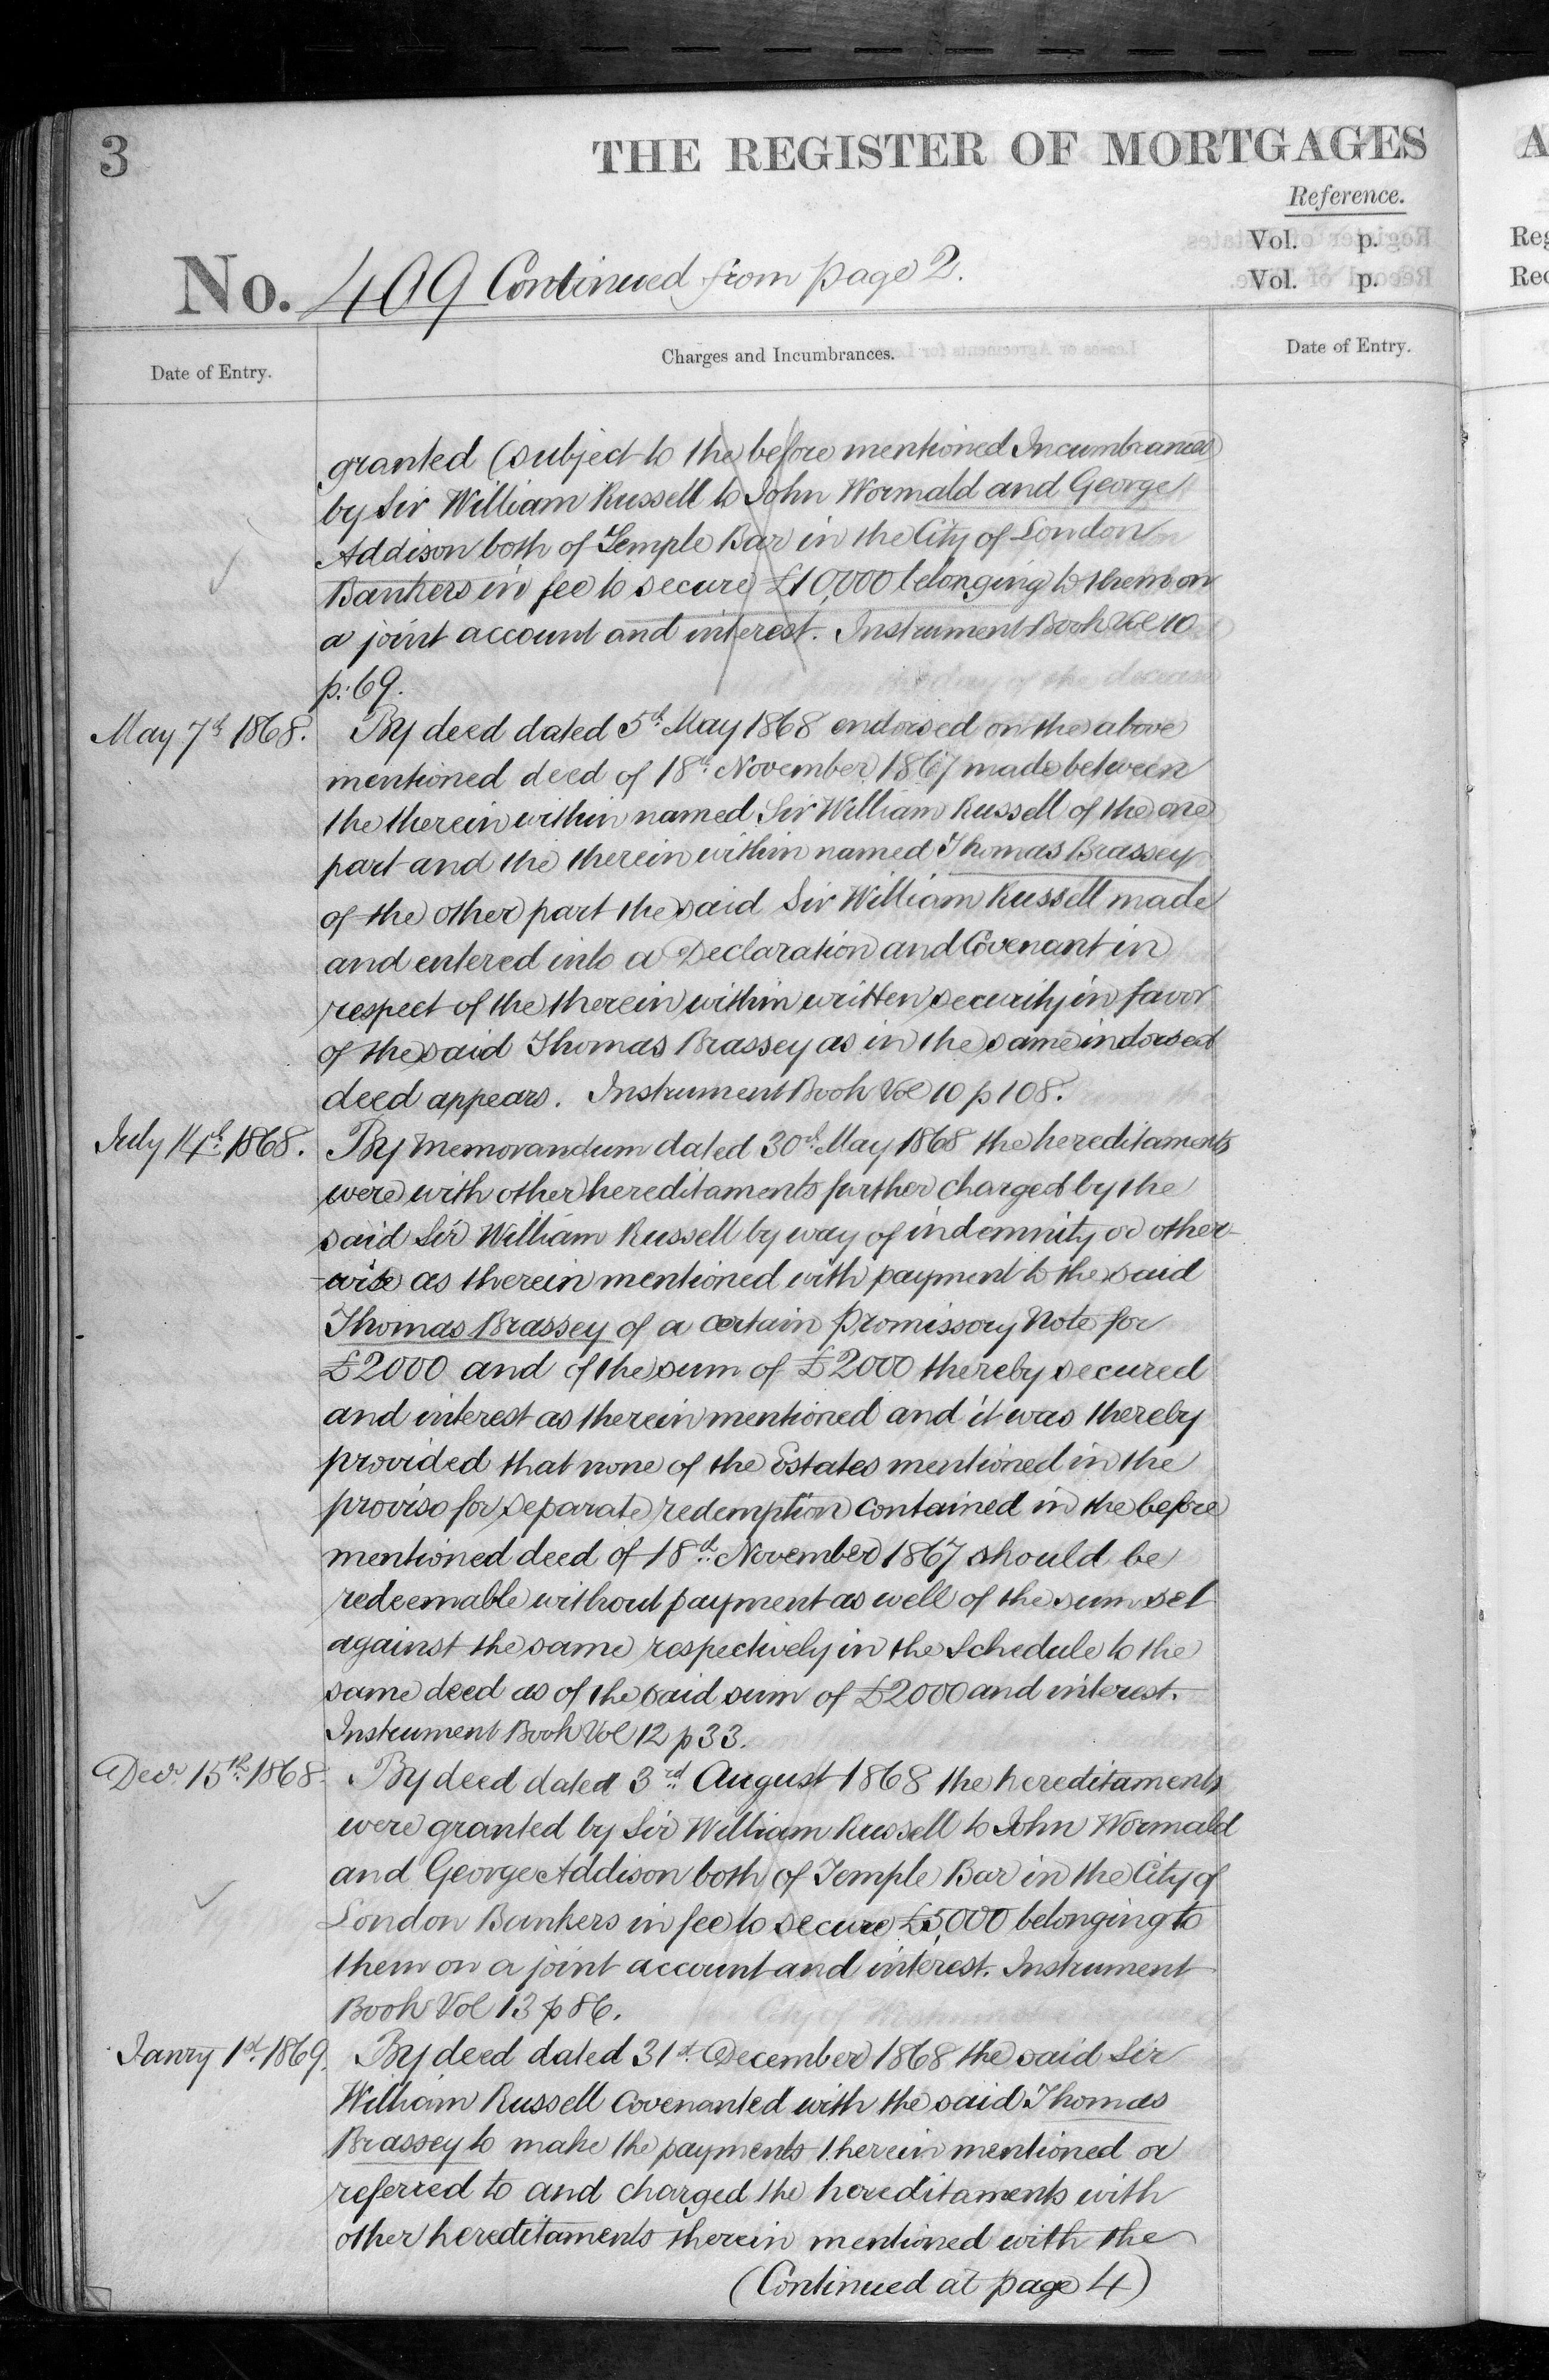 3
THE REGISTER OF MORTGAGES
Reference.
Vol. p.
Vol. p.
No. 409 Continued from page 2.
Date of Entry.
Charges and Incumbrances.
Date of Entry.
granted (subject to the before mentioned Incumbrances)
by Sir William Russell to John Wormald and George
Addison both of Temple Bar in the City of London
Bankers in fee to secure £10,000 belonging to them on
a joint account and interest. Instrument Book Vol 10
p. 69.
May 7th 1868. By deed dated 5th May 1868 endorsed on the above
mentioned deed of 18th November 1867 made between
the therein within named Sir William Russell of the one
part and the therein within named Thomas Brassey
of the other part the said Sir William Russell made
and entered into a Declaration and Covenant in
respect of the therein within written security in favor
of the said Thomas Brassey as in the same indorsed
deed appears. Instrument Book Vol 10 p 108.
July 14th 1868. By Memorandum dated 30th May 1868 the hereditaments
were with other hereditaments further charged by the
said Sir William Russell by way of indemnity or other-
-wise as therein mentioned with payment to the said
Thomas Brassey of a certain Promissory Note for
£2000 and of the sum of £2000 thereby secured
and interest as therein mentioned and it was thereby
provided that none of the Estates mentioned in the
proviso for separate redemption contained in the before
mentioned deed of 18th November 1867 should be
redeemable without payment as well of the sum set
against the same respectively in the Schedule to the
same deed as of the said sum of £2000 and interest.
Instrument Book Vol 12 p 33.
Decr 15th 1868. By deed dated 3rd August 1868 the hereditaments
were granted by Sir William Russell to John Wormald
and George Addison both of Temple Bar in the City of
London Bankers in fee to secure £5,000 belonging to
them on a joint account and interest. Instrument
Book Vol 13 p 86.
Janry 1st 1869. By deed dated 31st December 1868 the said Sir
William Russell covenanted with the said Thomas
Brassey to make the payments therein mentioned or
referred to and charged the hereditaments with
other hereditaments therein mentioned with the
(Continued at page 4)
A
Reg
Rec